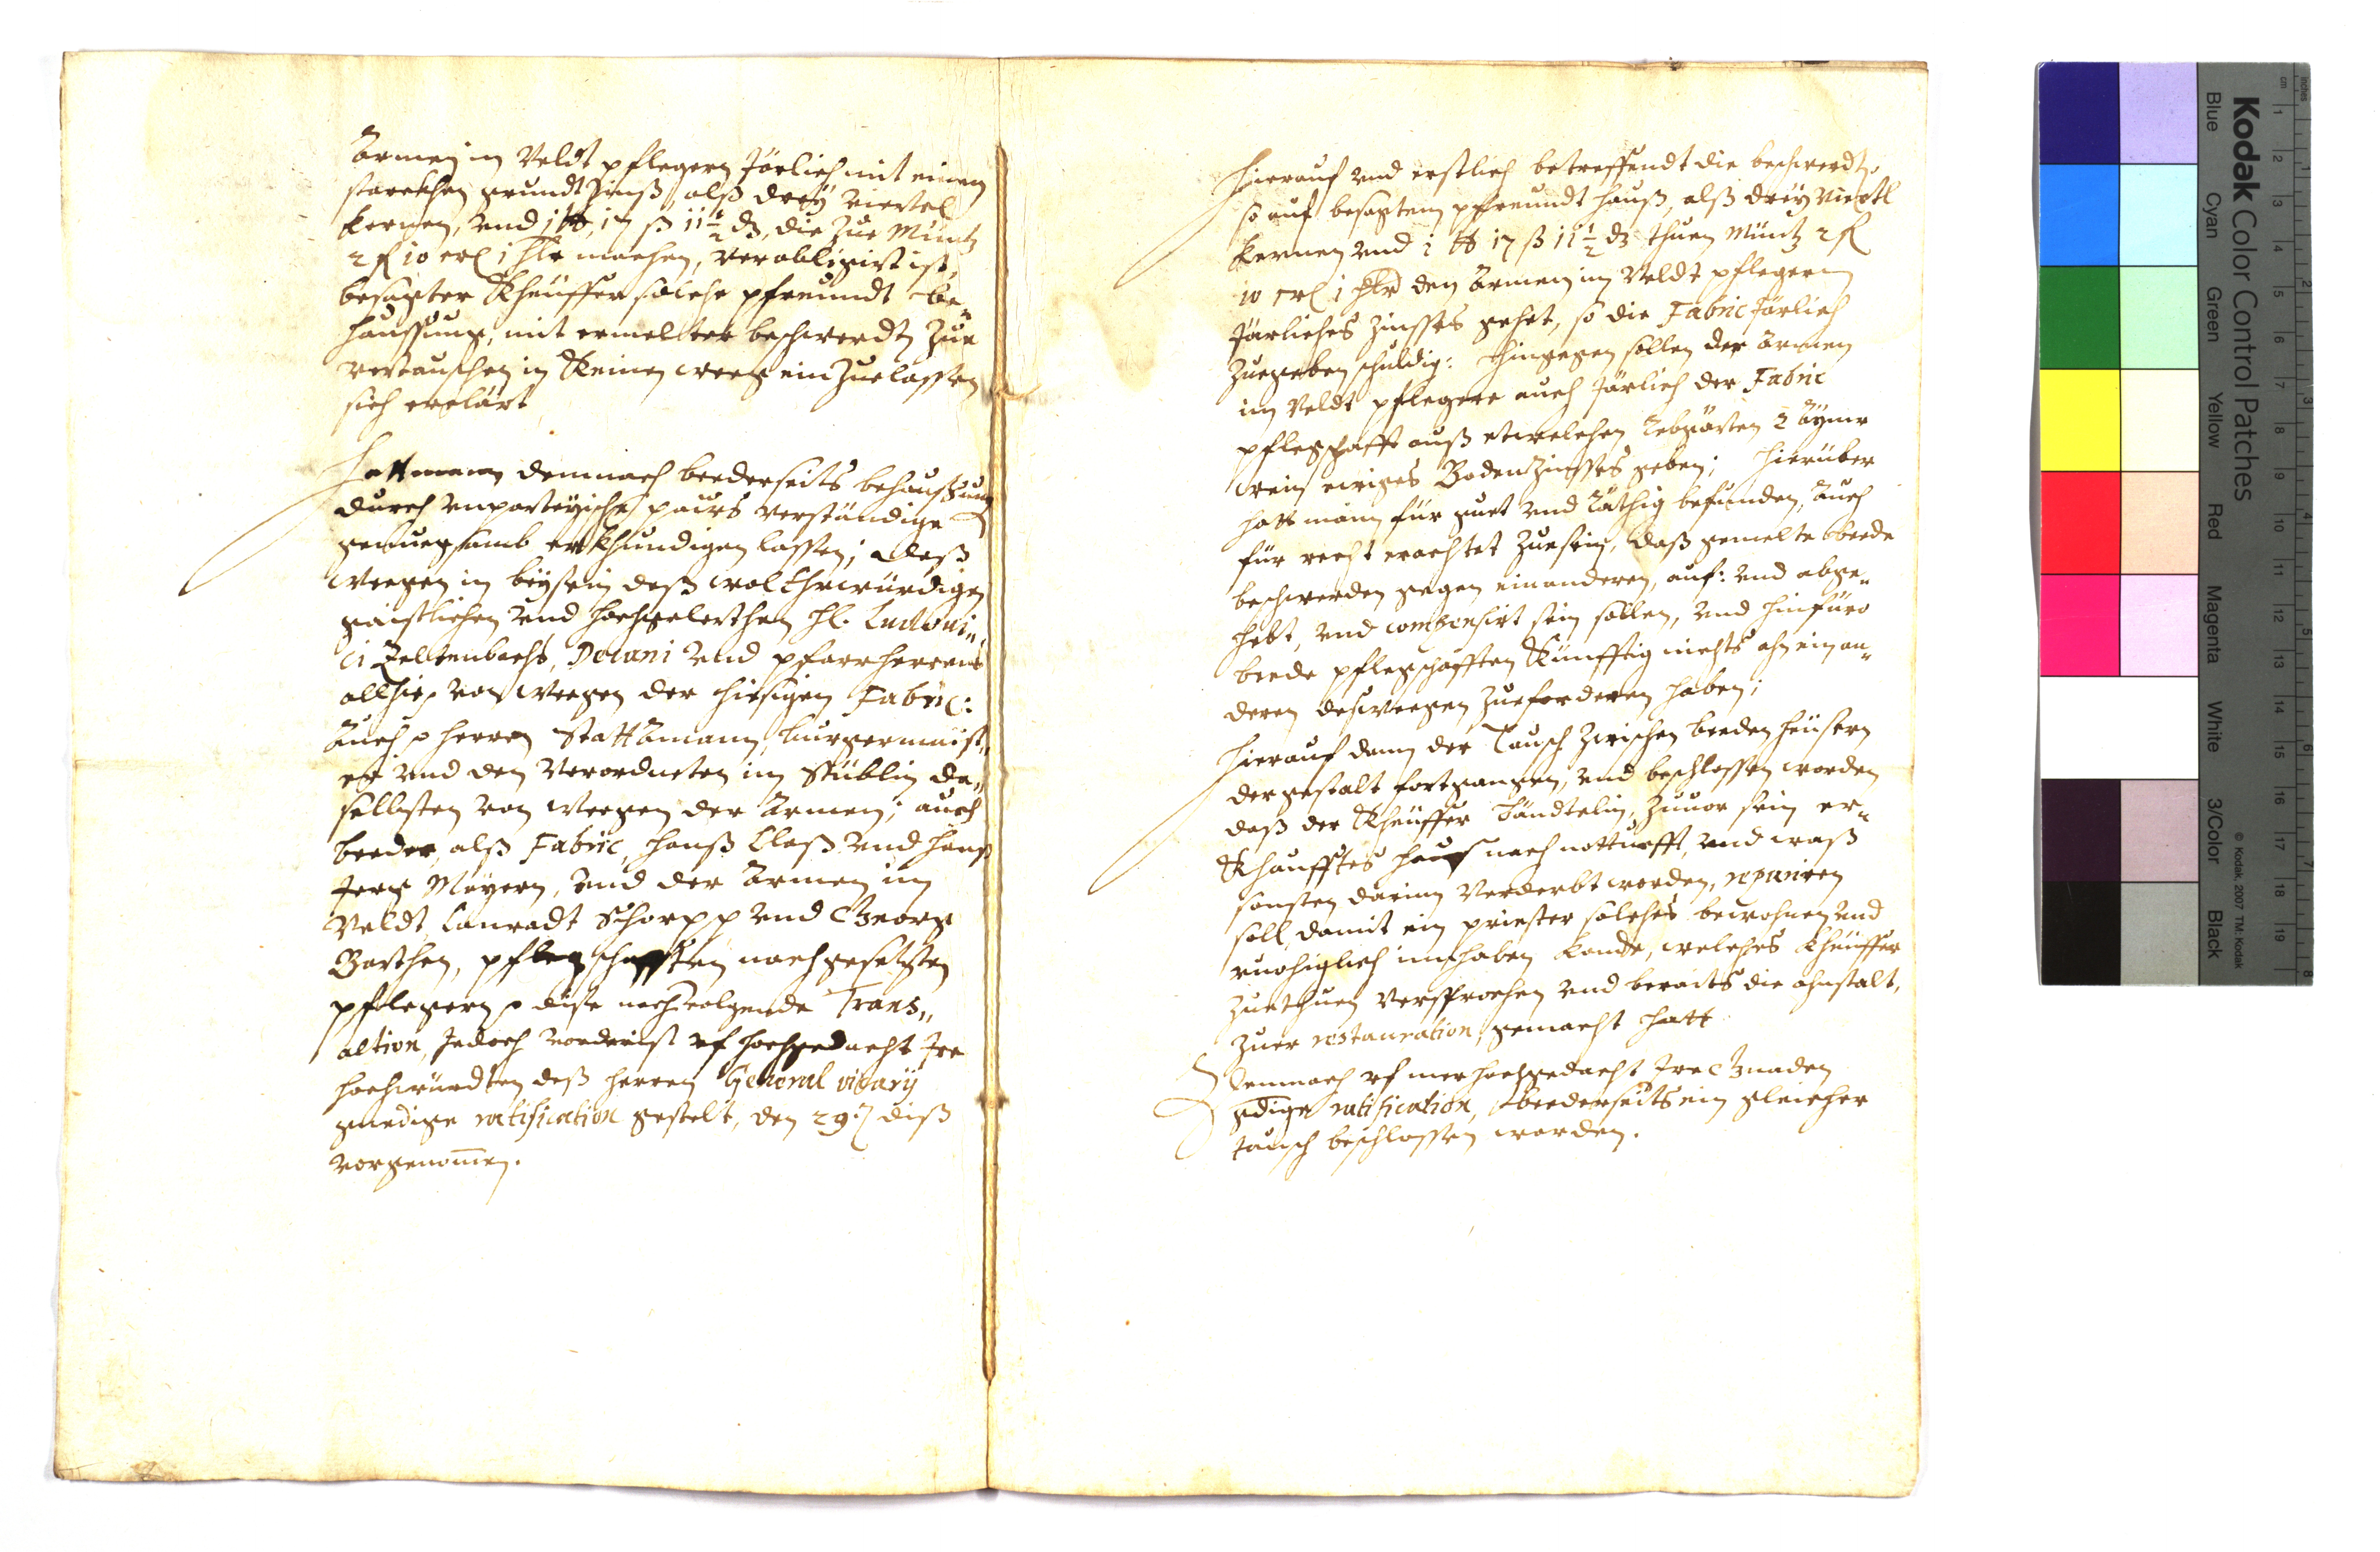 Armen im Veldt pflegern Järlich mit einem
starckhen grundt Zinß, alß dreÿ viertel
kernen, und 1 ℔ 17 ß 11 1/2 d, die zue Müntz
2 fl 10 crl 1 hlr machen, verobligirt ist,
besagter Kheüffer solche pfreundt be-
haussung, mit ermelter beschwerdt Zue
vertauschen in keinen weeg ein Zuelassen
sich erclärt
Hatt mann demnach beederseits behaussung
durch unparteÿische pauws verständige
genuegsamb erkhundigen lassen; deß
weegen in beÿsein deß wol Ehrwürdigen
gaistlichen und hochgelerthen H. Ludoui-
ci Zeltenbachs, Decani und pfarrherrens
allhie, von weegen der hiesigen Fabric:
Auch herren Stattamann, burgermaist-
er und den verordneten im Stüblin da-
selbsten von weegen der Armen; auch
beeder, alß Fabric, Hanß Claß und Hanß
Jerg Mayern, und der Armen im
Veldt Conradt Schorpp und Georg
Barthen, pflegschafften nachgesetzten
pflegern dise nachvolgende Trans-
action, Jedoch vorderist uf hochgedacht Ire
hochwürdten deß herren General vicarÿ
gnedige ratification gestelt, den 29. diß
vorgenomen.
Hierauf und erstlich betreffendt die beschwerdt,
so auf besagtem pfreundt hauß, alß dreÿ viertl
kernen und 1 ℔ 17 ß 11 1/2 d thuen Müntz 2 fl
10 crl 1 hlr den Armen im Veldt pflegern
Järliches Zinsses gehet, so die Fabric Järlich
Zuegeben schuldig: Hingegen sollen der Armen
im Veldt pflegere auch Järlich der Fabric
pflegschafft auß etwelchen Rebgärten 2 Aÿmer
wein ewiges Bodenzinsses geben; Hierüber
hatt mann für guet und Räthig befunden, Auch
für recht erachtet Zuesein, daß gemelte beede
beschwerden gegen einanderen, auf: und abge-
hebt, und compensirt sein sollen, und hinfüro
beede pflegschafften Künfftig nichts ahn einan-
deren deßweegen Zueforderen haben;
Hierauf dann der Tausch Zwischen beeden heüsern
dergestalt fortgangen, und beschlossen worden
daß der Kheüffer Tändtelin, Zuuor sein er-
Khaufftes hauß nach notturfft, und waß
sonsten darinn Verderbt worden, repariren
soll, damit ein priester solches bewohnen und
ruohiglich innhaben konde, welches Kheüffer
Zuethuen versprochen und beraits die ahnstalt,
Zuer restauration gemacht hatt.
Demnach uf mer hochgedacht Ire Gnaden
gdige ratification, beederseits ein gleicher
tausch beschlossen worden.
Kodak Color Control Patches
Blue Cyan Green Yellow Red Magenta White 3/Color Black
© Kodak, 2007 TM: Kodak
inches 1 2 3 4 5 6 7 8
cm 1 2 3 4 5 6 7 8 9 10 11 12 13 14 15 16 17 18 19